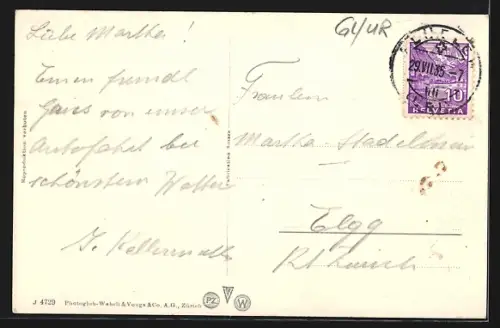 Liebe Martha!
Einen freundl.
Gruss von unser
Autofahrt bei
schönstem Wetter
J.
G4/UR
29.VII.35.-7
10
HELVETIA
Fräulein
Martha
Elgg
Kt Zürich
J 4729 Photoglob-Wehrli & Vouga & Co. A.G., Zürich
PZ V W
Reproduktion verboten